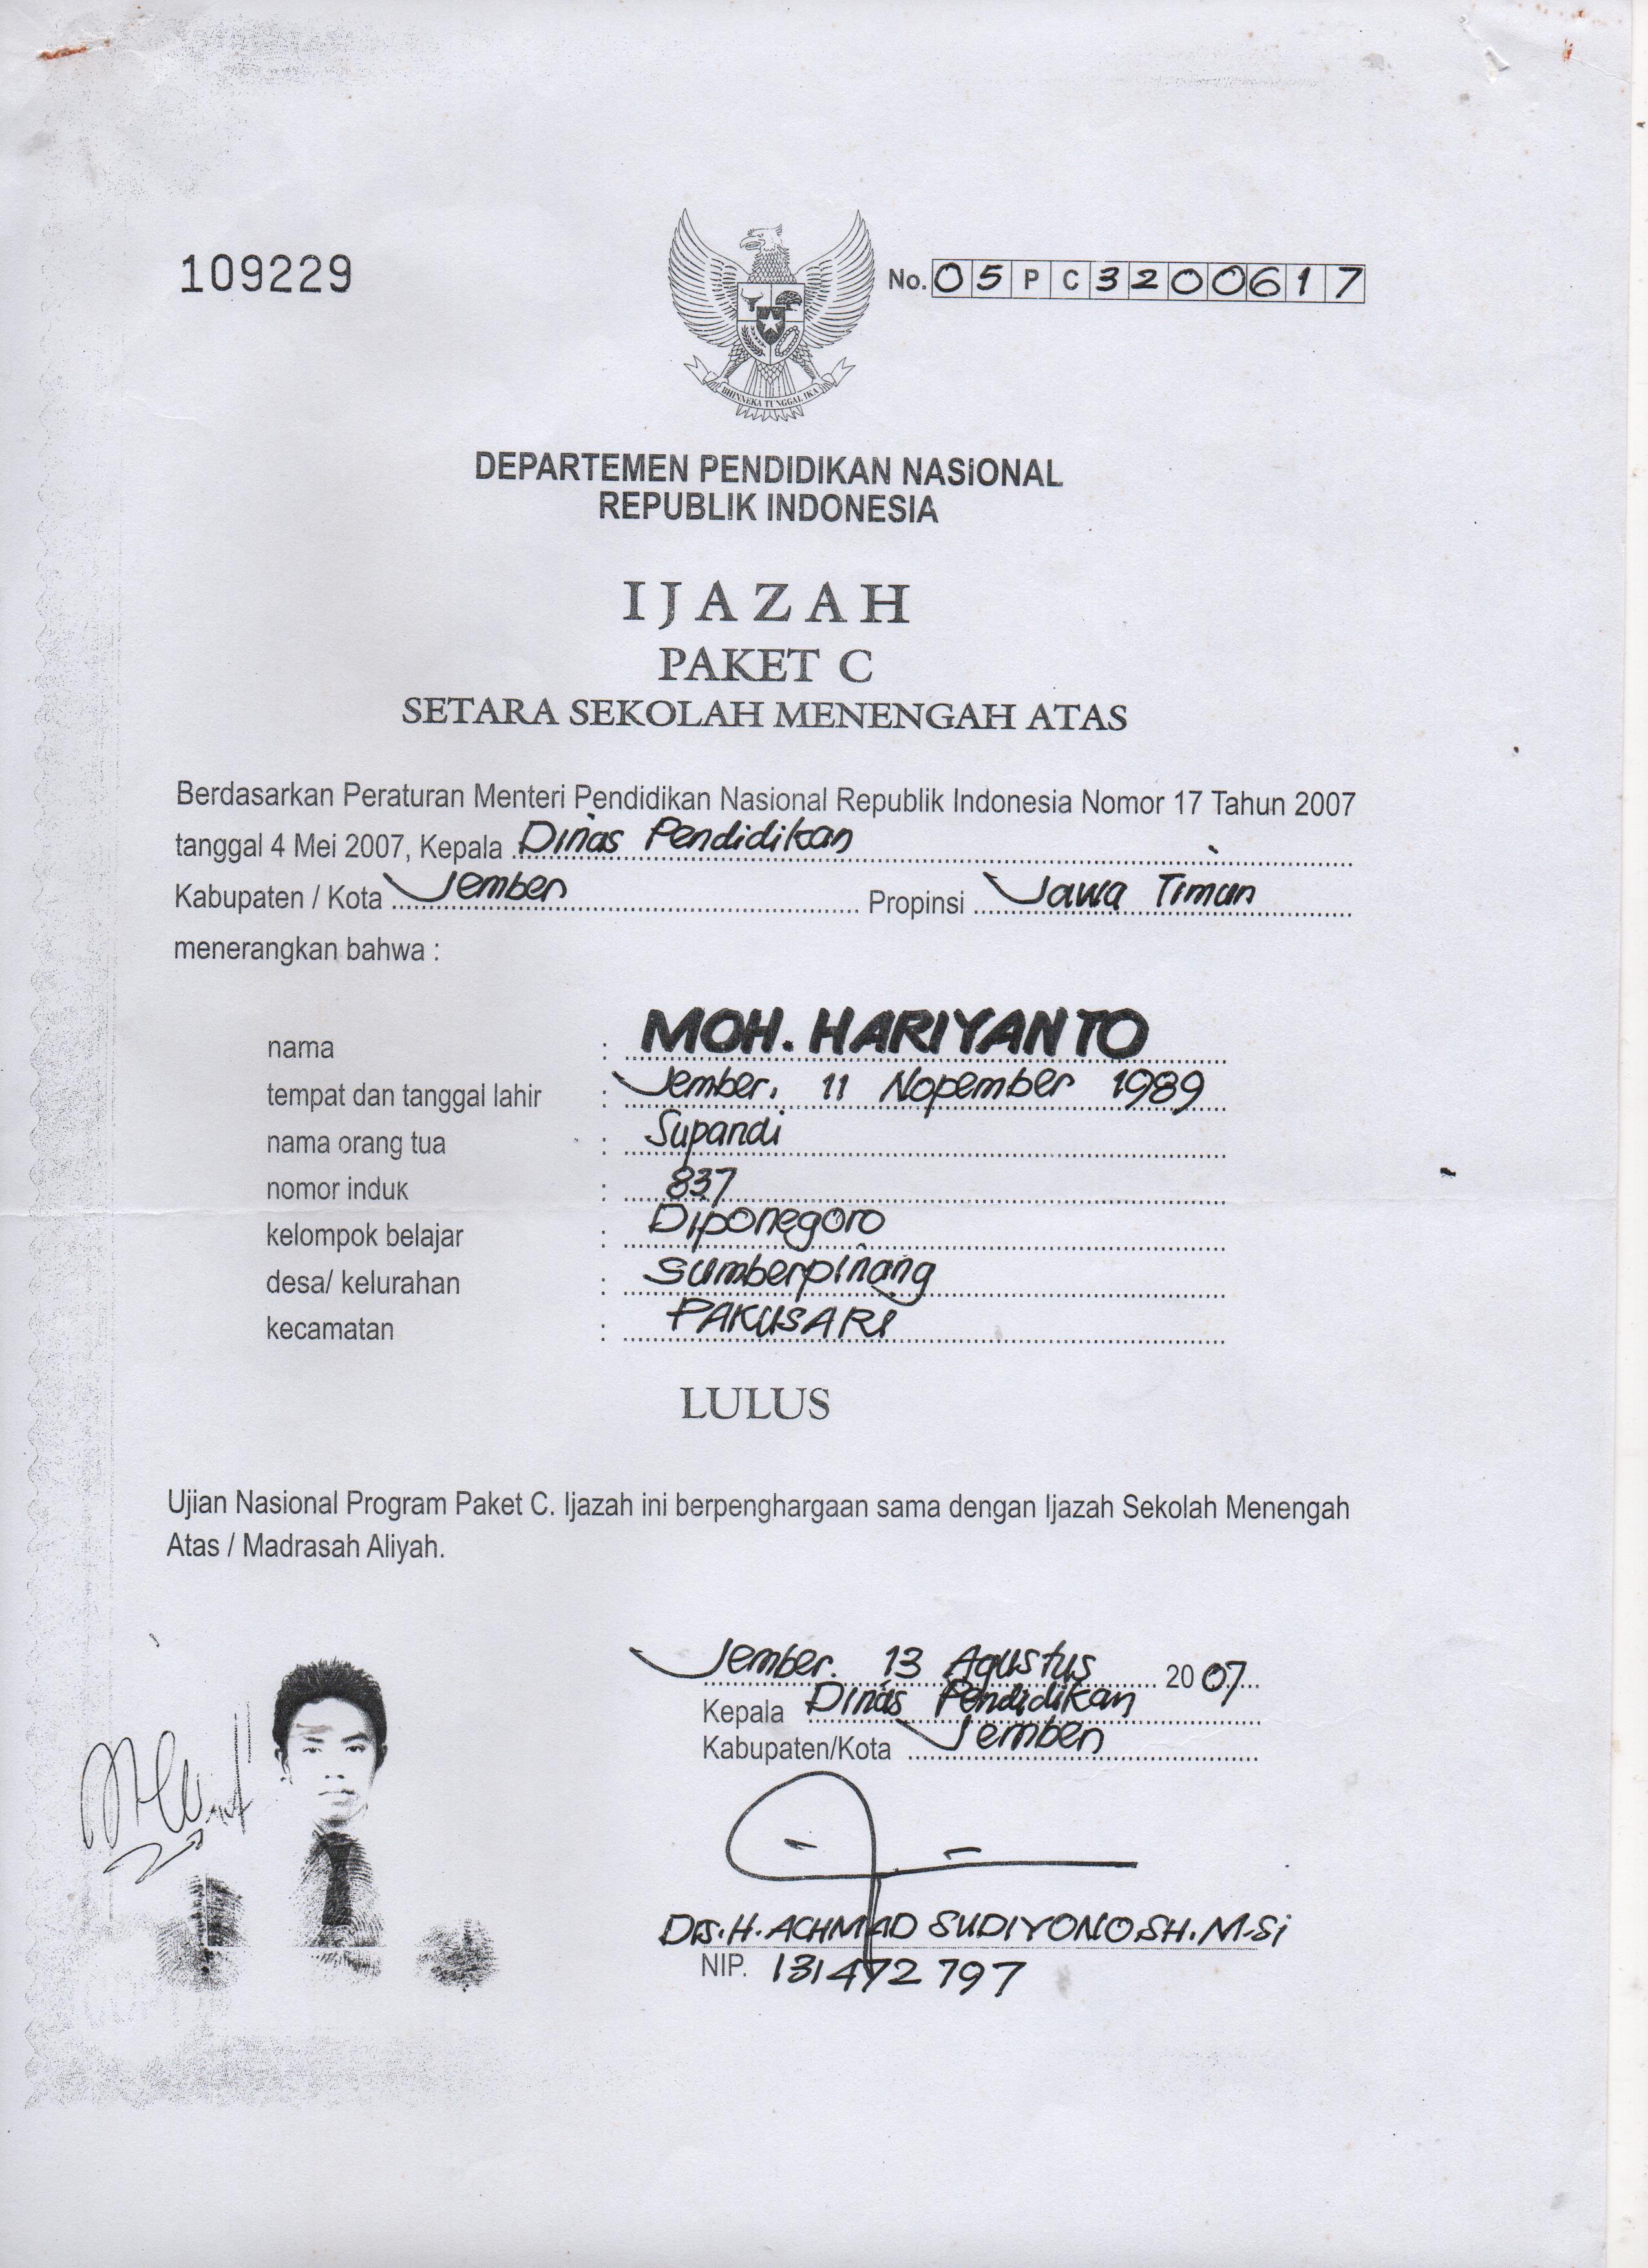 109229
No. 05PC3200617
BHINNEKA TUNGGAL IKA
DEPARTEMEN PENDIDIKAN NASIONAL
REPUBLIK INDONESIA
IJAZAH
PAKET C
SETARA SEKOLAH MENENGAH ATAS
Berdasarkan Peraturan Menteri Pendidikan Nasional Republik Indonesia Nomor 17 Tahun 2007
tanggal 4 Mei 2007, Kepala Dinas Pendidikan
Kabupaten / Kota Jember Propinsi Jawa Timur
menerangkan bahwa :
nama : MOH. HARIYANTO
tempat dan tanggal lahir : Jember, 11 Nopember 1989
nama orang tua : Supandi
nomor induk : 837
kelompok belajar : Diponegoro
desa/ kelurahan : Sumberpinang
kecamatan : PAKUSARI
LULUS
Ujian Nasional Program Paket C. Ijazah ini berpenghargaan sama dengan Ijazah Sekolah Menengah
Atas / Madrasah Aliyah.
Jember. 13 Agustus 2007
Kepala Dinas Pendidikan
Kabupaten/Kota Jember
Drs. H. ACHMAD SUDIYONO SH. M.Si
NIP. 131472797